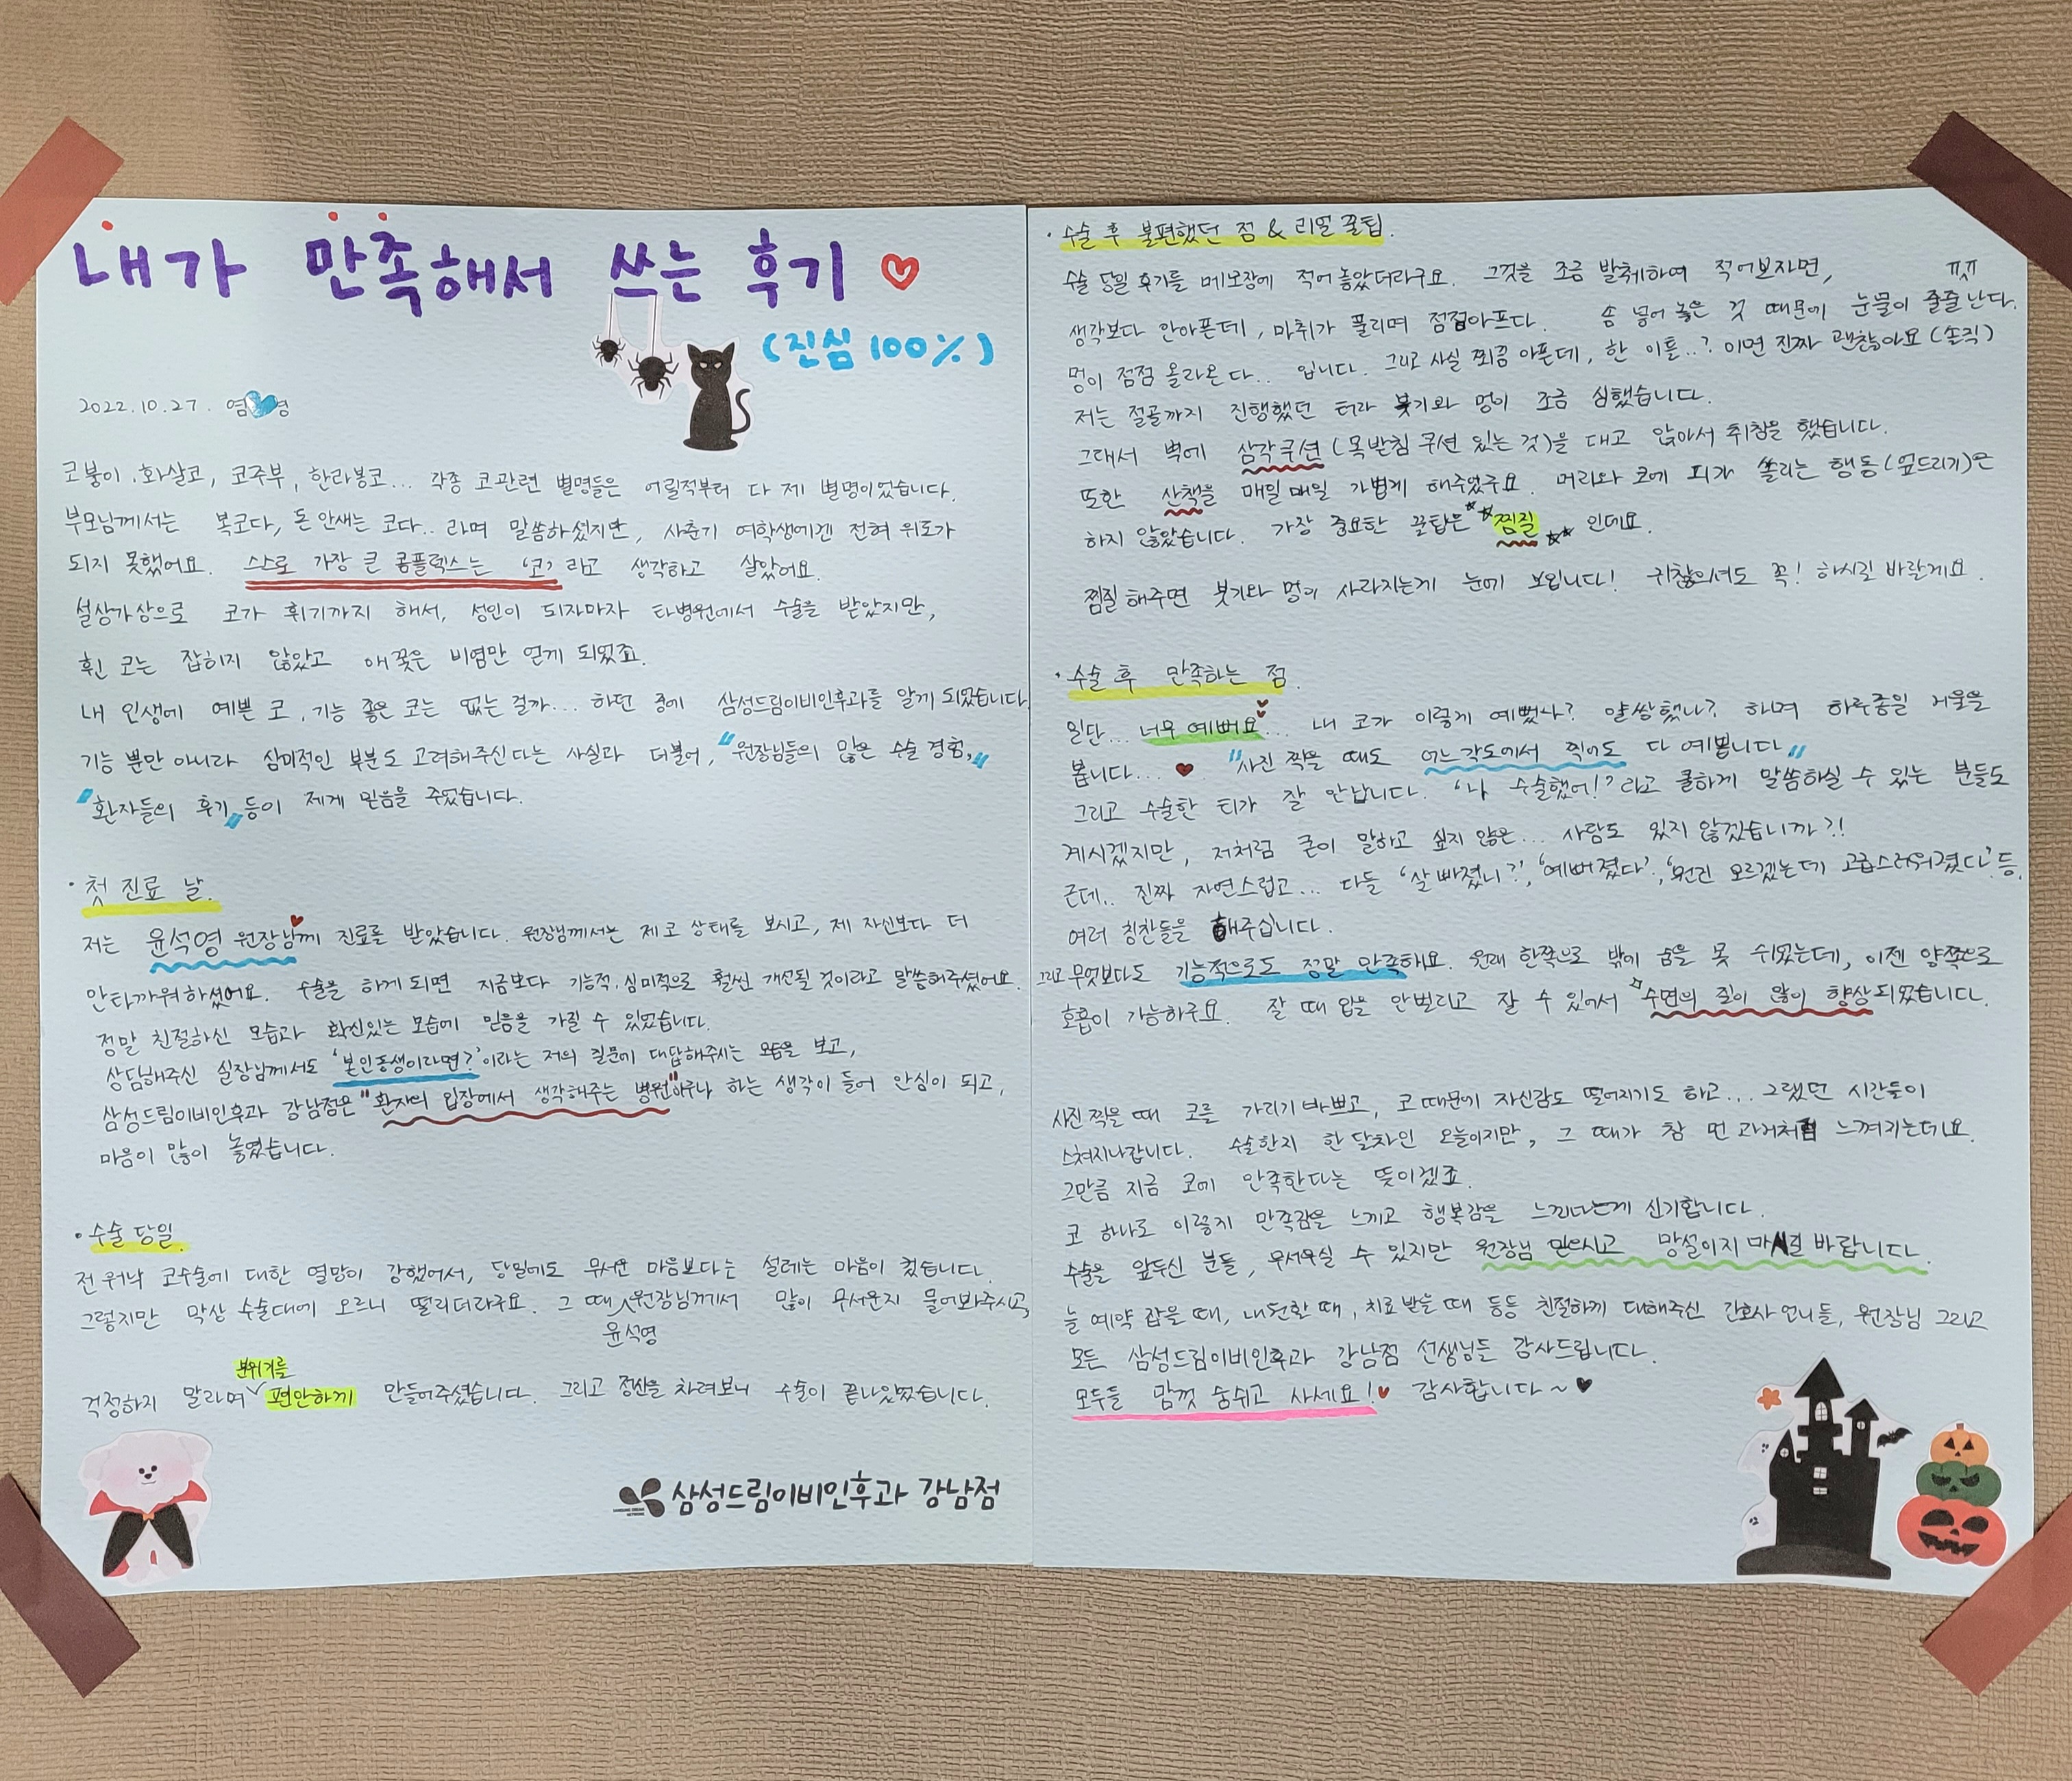 내가 만족해서 쓰는 후기
(진심 100%)
2022.10.27. 염 영
코봉이, 화살코, 코주부, 한라봉코... 각종 코관련 별명들은 어릴적부터 다 제 별명이었습니다.
부모님께서는 복코다, 돈 안새는 코다.. 라며 말씀하셨지만, 사춘기 여학생에겐 전혀 위로가
되지 못했어요. 스스로 가장 큰 콤플렉스는 '코'라고 생각하고 살았어요.
설상가상으로 코가 휘기까지 해서, 성인이 되자마자 타병원에서 수술을 받았지만,
휜 코는 잡히지 않았고 애꿎은 비염만 얻게 되었죠.
내 인생에 예쁜 코, 기능 좋은 코는 없는 걸까... 하던 중에 삼성드림이비인후과를 알게 되었습니다.
기능 뿐만 아니라 심미적인 부분도 고려해주신다는 사실과 더불어, "원장님들의 많은 수술 경험,"
"환자들의 후기" 등이 제게 믿음을 주었습니다.
· 첫 진료 날.
저는 윤석영 원장님께 진료를 받았습니다. 원장님께서는 제 코 상태를 보시고, 제 자신보다 더
안타까워하셨어요. 수술을 하게 되면 지금보다 기능적, 심미적으로 훨씬 개선될 것이라고 말씀해주셨어요.
정말 친절하신 모습과 확신있는 모습에 믿음을 가질 수 있었습니다.
상담해주신 실장님께서도 '본인동생이라면?'이라는 저의 질문에 대답해주시는 모습을 보고,
삼성드림이비인후과 강남점은 "환자의 입장에서 생각해주는 병원"이구나 하는 생각이 들어 안심이 되고,
마음이 많이 놓였습니다.
· 수술 당일.
전 워낙 코수술에 대한 열망이 강했어서, 당일에도 무서운 마음보다는 설레는 마음이 컸습니다.
그렇지만 막상 수술대에 오르니 떨리더라구요. 그 때 원장님께서 많이 무서운지 물어봐주시고,
윤석영
분위기를
걱정하지 말라며 편안하게 만들어주셨습니다. 그리고 정신을 차려보니 수술이 끝나있었습니다.
삼성드림이비인후과 강남점
· 수술 후 불편했던 점 & 리얼 꿀팁.
수술 당일 후기를 메모장에 적어 놓았더라구요. 그것을 조금 발췌하여 적어보자면,
ㅠㅅㅠ
생각보다 안아픈데, 마취가 풀리며 점점아프다. 솜 넣어 놓은 것 때문에 눈물이 줄줄 난다.
멍이 점점 올라온다.. 입니다. 그리고 사실 쬐끔 아픈데, 한 이틀..? 이면 진짜 괜찮아요 (솔직)
저는 절골까지 진행했던 터라 붓기와 멍이 조금 심했습니다.
그래서 벽에 삼각쿠션 (목받침 쿠션 있는 것)을 대고 앉아서 취침을 했습니다.
또한 산책을 매일매일 가볍게 해주었구요. 머리와 코에 피가 쏠리는 행동(엎드리기)은
하지 않았습니다. 가장 중요한 꿀팁은 찜질 인데요.
찜질 해주면 붓기와 멍이 사라지는게 눈에 보입니다! 귀찮으셔도 꼭! 하시길 바랄게요.
· 수술 후 만족하는 점.
일단... 너무 예뻐요... 내 코가 이렇게 예뻤나? 얄쌍했나? 하며 하루종일 거울을
봅니다... "사진 찍을 때도 어느각도에서 찍어도 다 예쁩니다"
그리고 수술한 티가 잘 안납니다. '나 수술했어!?'라고 쿨하게 말씀하실 수 있는 분들도
계시겠지만, 저처럼 굳이 말하고 싶지 않은... 사람도 있지 않겠습니까?!
근데.. 진짜 자연스럽고... 다들 '살 빠졌니?', '예뻐졌다', '뭔진 모르겠는데 고급스러워졌다'. 등,
여러 칭찬들을 해주십니다.
그리고 무엇보다도 기능적으로도 정말 만족해요. 원래 한쪽으로 밖에 숨을 못 쉬었는데, 이젠 양쪽으로
호흡이 가능하구요. 잘 때 입을 안벌리고 잘 수 있어서 수면의 질이 많이 향상되었습니다.
사진찍을 때 코를 가리기 바쁘고, 코 때문에 자신감도 떨어지기도 하고... 그랬던 시간들이
스쳐지나갑니다. 수술한지 한 달차인 오늘이지만, 그 때가 참 먼 과거처럼 느껴지는데요.
그만큼 지금 코에 만족한다는 뜻이겠죠.
코 하나로 이렇게 만족감을 느끼고 행복감을 느낀다는게 신기합니다.
수술을 앞두신 분들, 무서우실 수 있지만 원장님 믿으시고 망설이지 마시길 바랍니다.
늘 예약 잡을 때, 내원할 때, 치료 받을 때 등등 친절하게 대해주신 간호사 언니들, 원장님 그리고
모든 삼성드림이비인후과 강남점 선생님들 감사드립니다.
모두들 맘껏 숨쉬고 사세요! 감사합니다~